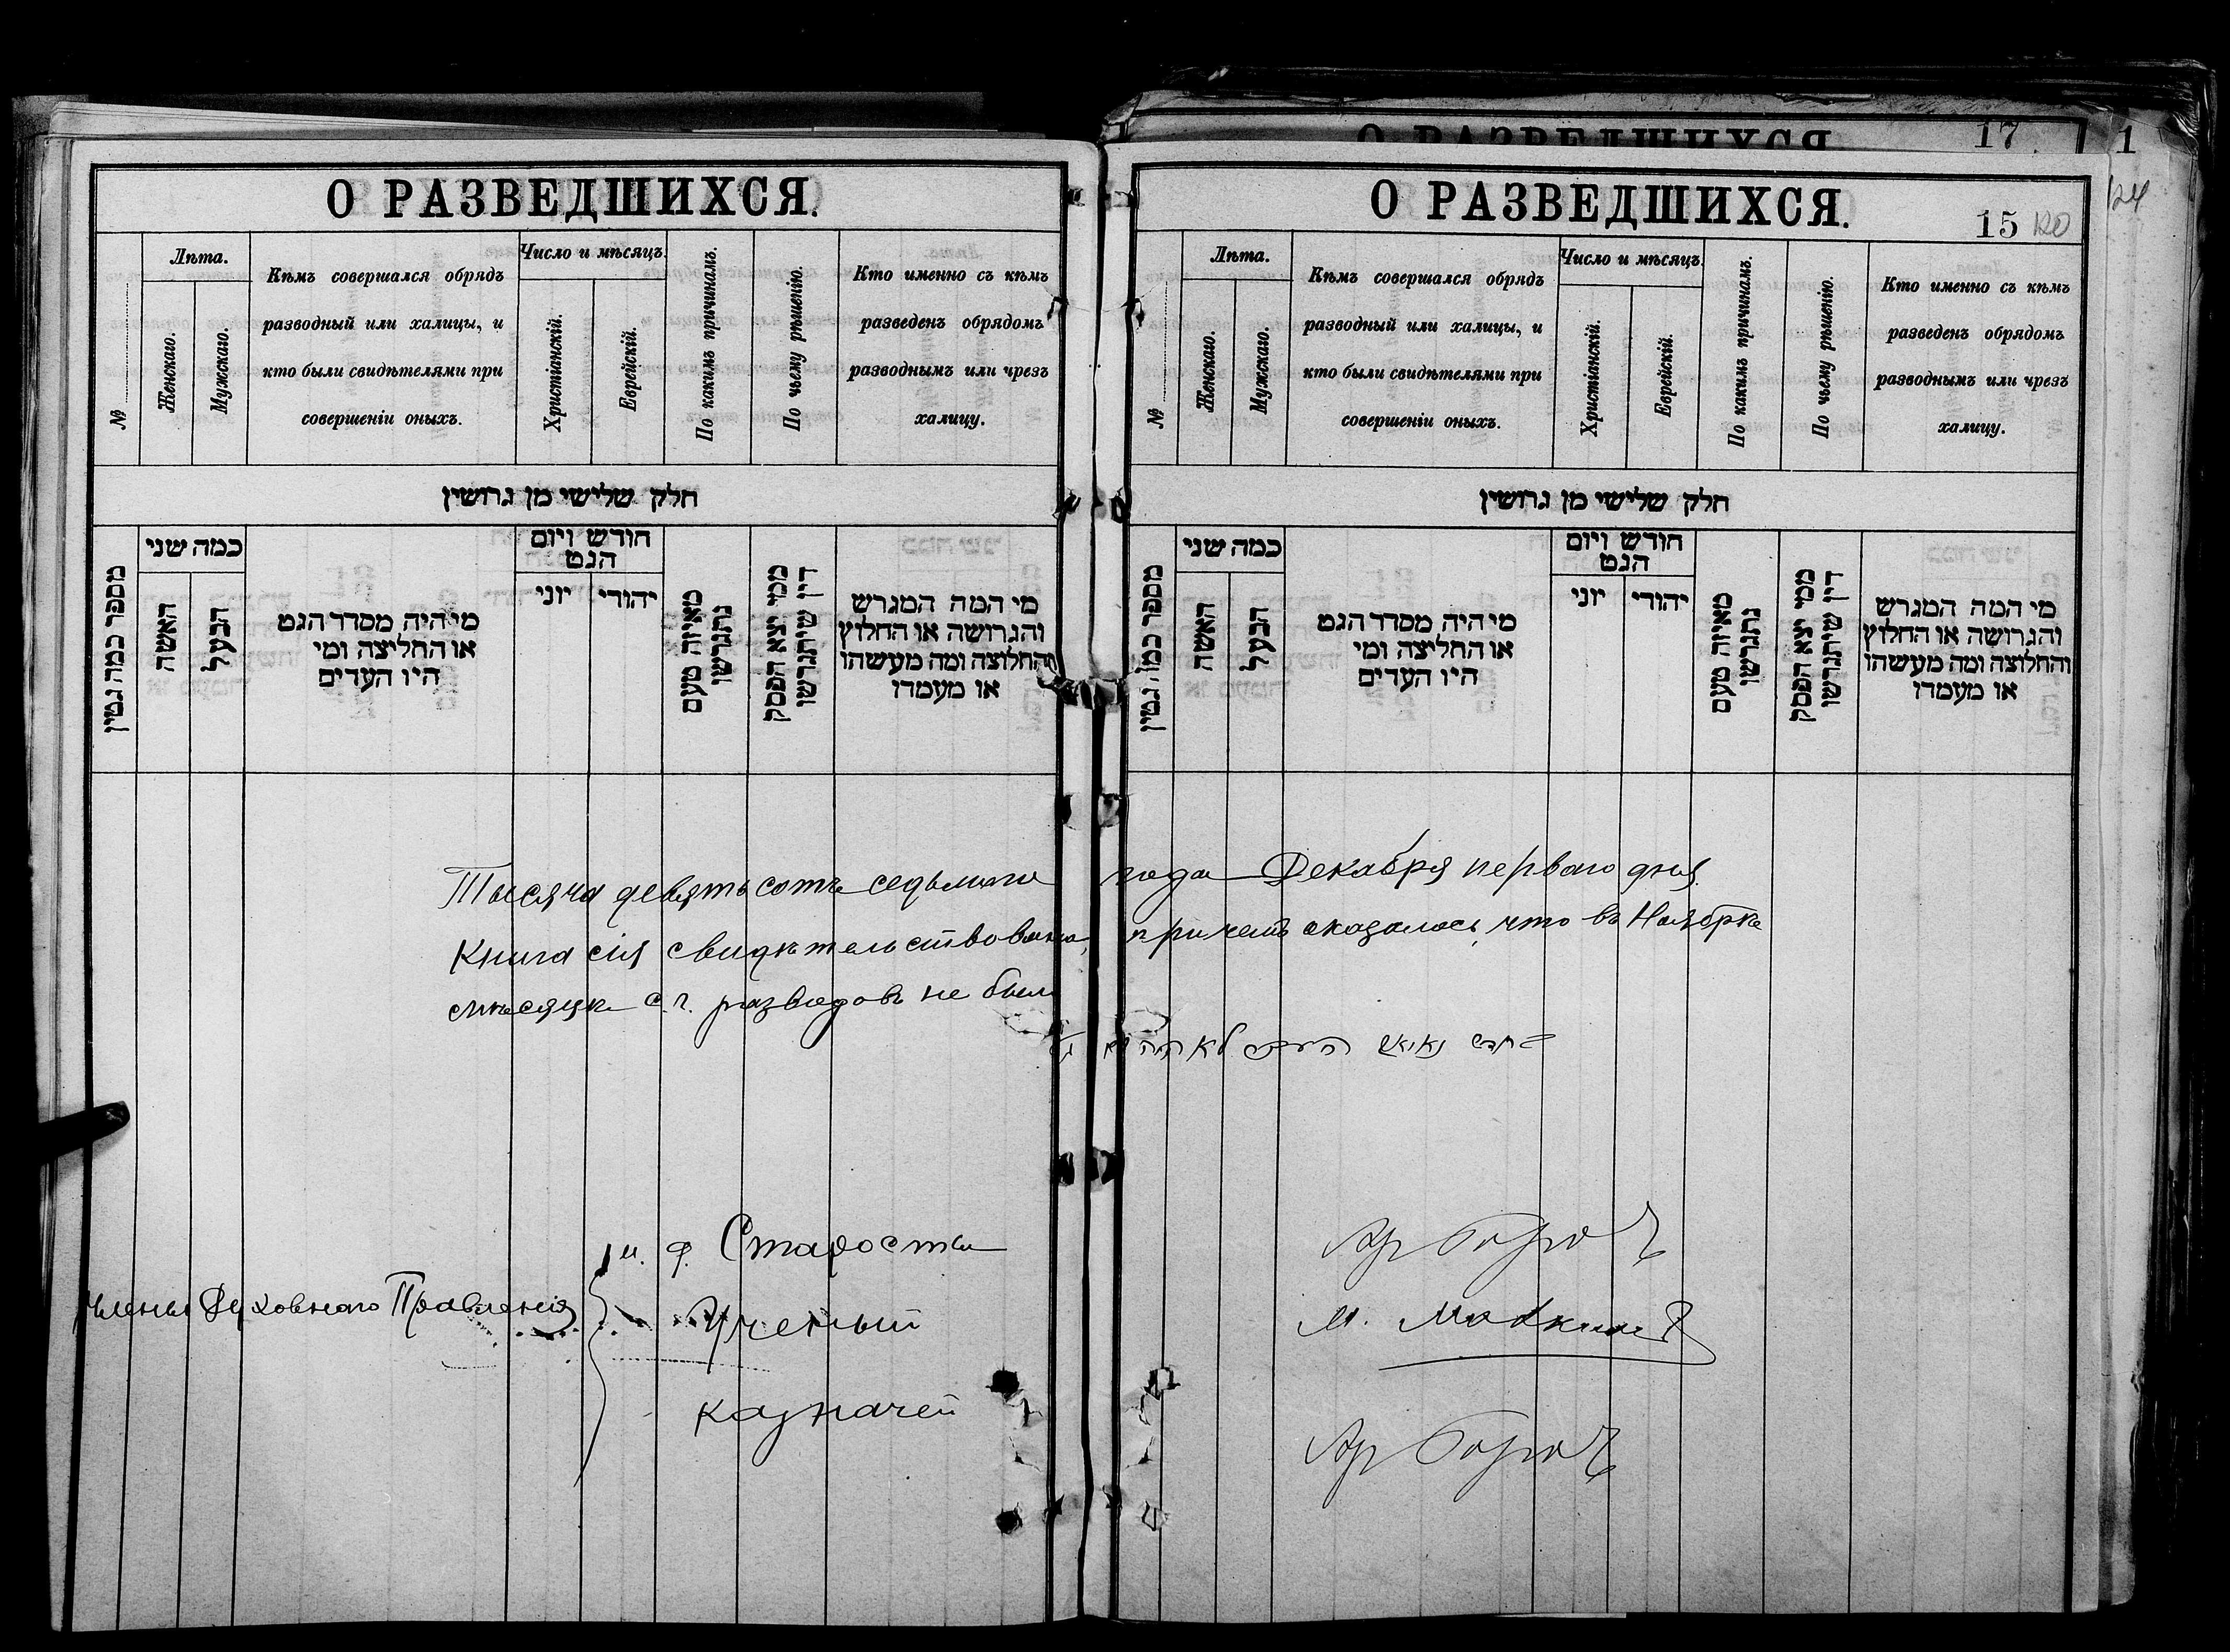 О РАЗВЕДШИХСЯ.
№
Лѣта.
Женскаго.
Мужскаго.
Кѣмъ совершался обрядъ
разводный или халицы, и
кто были свидѣтелями при
совершеніи оныхъ.
Число и мѣсяцъ.
Христіанскій.
Еврейскій.
По какимъ причинамъ.
По чьему рѣшенію.
Кто именно съ кѣмъ
разведенъ обрядомъ
разводнымъ или чрезъ
халицу.
חלק שלישי מן גרושין
מספר כמה גטין
כמה שני
האשה
הבעל
מי היה מסדר הגט
או החליצה ומי
היו העדים
חודש ויום
הגט
יוני
יהודי
מאיזה טעם
נתגרשו
ממי יצא הפסק
דין שיתגרשו
מי המה המגרש
והגרושה או החלוץ
והחלוצה ומה מעשהו
או מעמדו
О РАЗВЕДШИХСЯ
17
1
124
О РАЗВЕДШИХСЯ.
15 120
№
Лѣта.
Женскаго.
Мужскаго.
Кѣмъ совершался обрядъ
разводный или халицы, и
кто были свидѣтелями при
совершеніи оныхъ.
Число и мѣсяцъ.
Христіанскій.
Еврейскій.
По какимъ причинамъ.
По чьему рѣшенію.
Кто именно съ кѣмъ
разведенъ обрядомъ
разводнымъ или чрезъ
халицу.
חלק שלישי מן גרושין
מספר כמה גטין
כמה שני
האשה
הבעל
מי היה מסדר הגט
או החליצה ומי
היו העדים
חודש ויום
הגט
יוני
יהודי
מאיזה טעם
נתגרשו
ממי יצא הפסק
דין שיתגרשו
מי המה המגרש
והגרושה או החלוץ
והחלוצה ומה מעשהו
או מעמדו
Тысяча девятьсотъ седьмого года Декабря перваго дня.
Книга сія свидѣтельствована, причемъ оказалось, что въ Ноябрѣ
мѣсяцѣ с. г. разводовъ не было
и. ф. Старосты
Члены Духовнаго Правленія
Ученый
Казначей